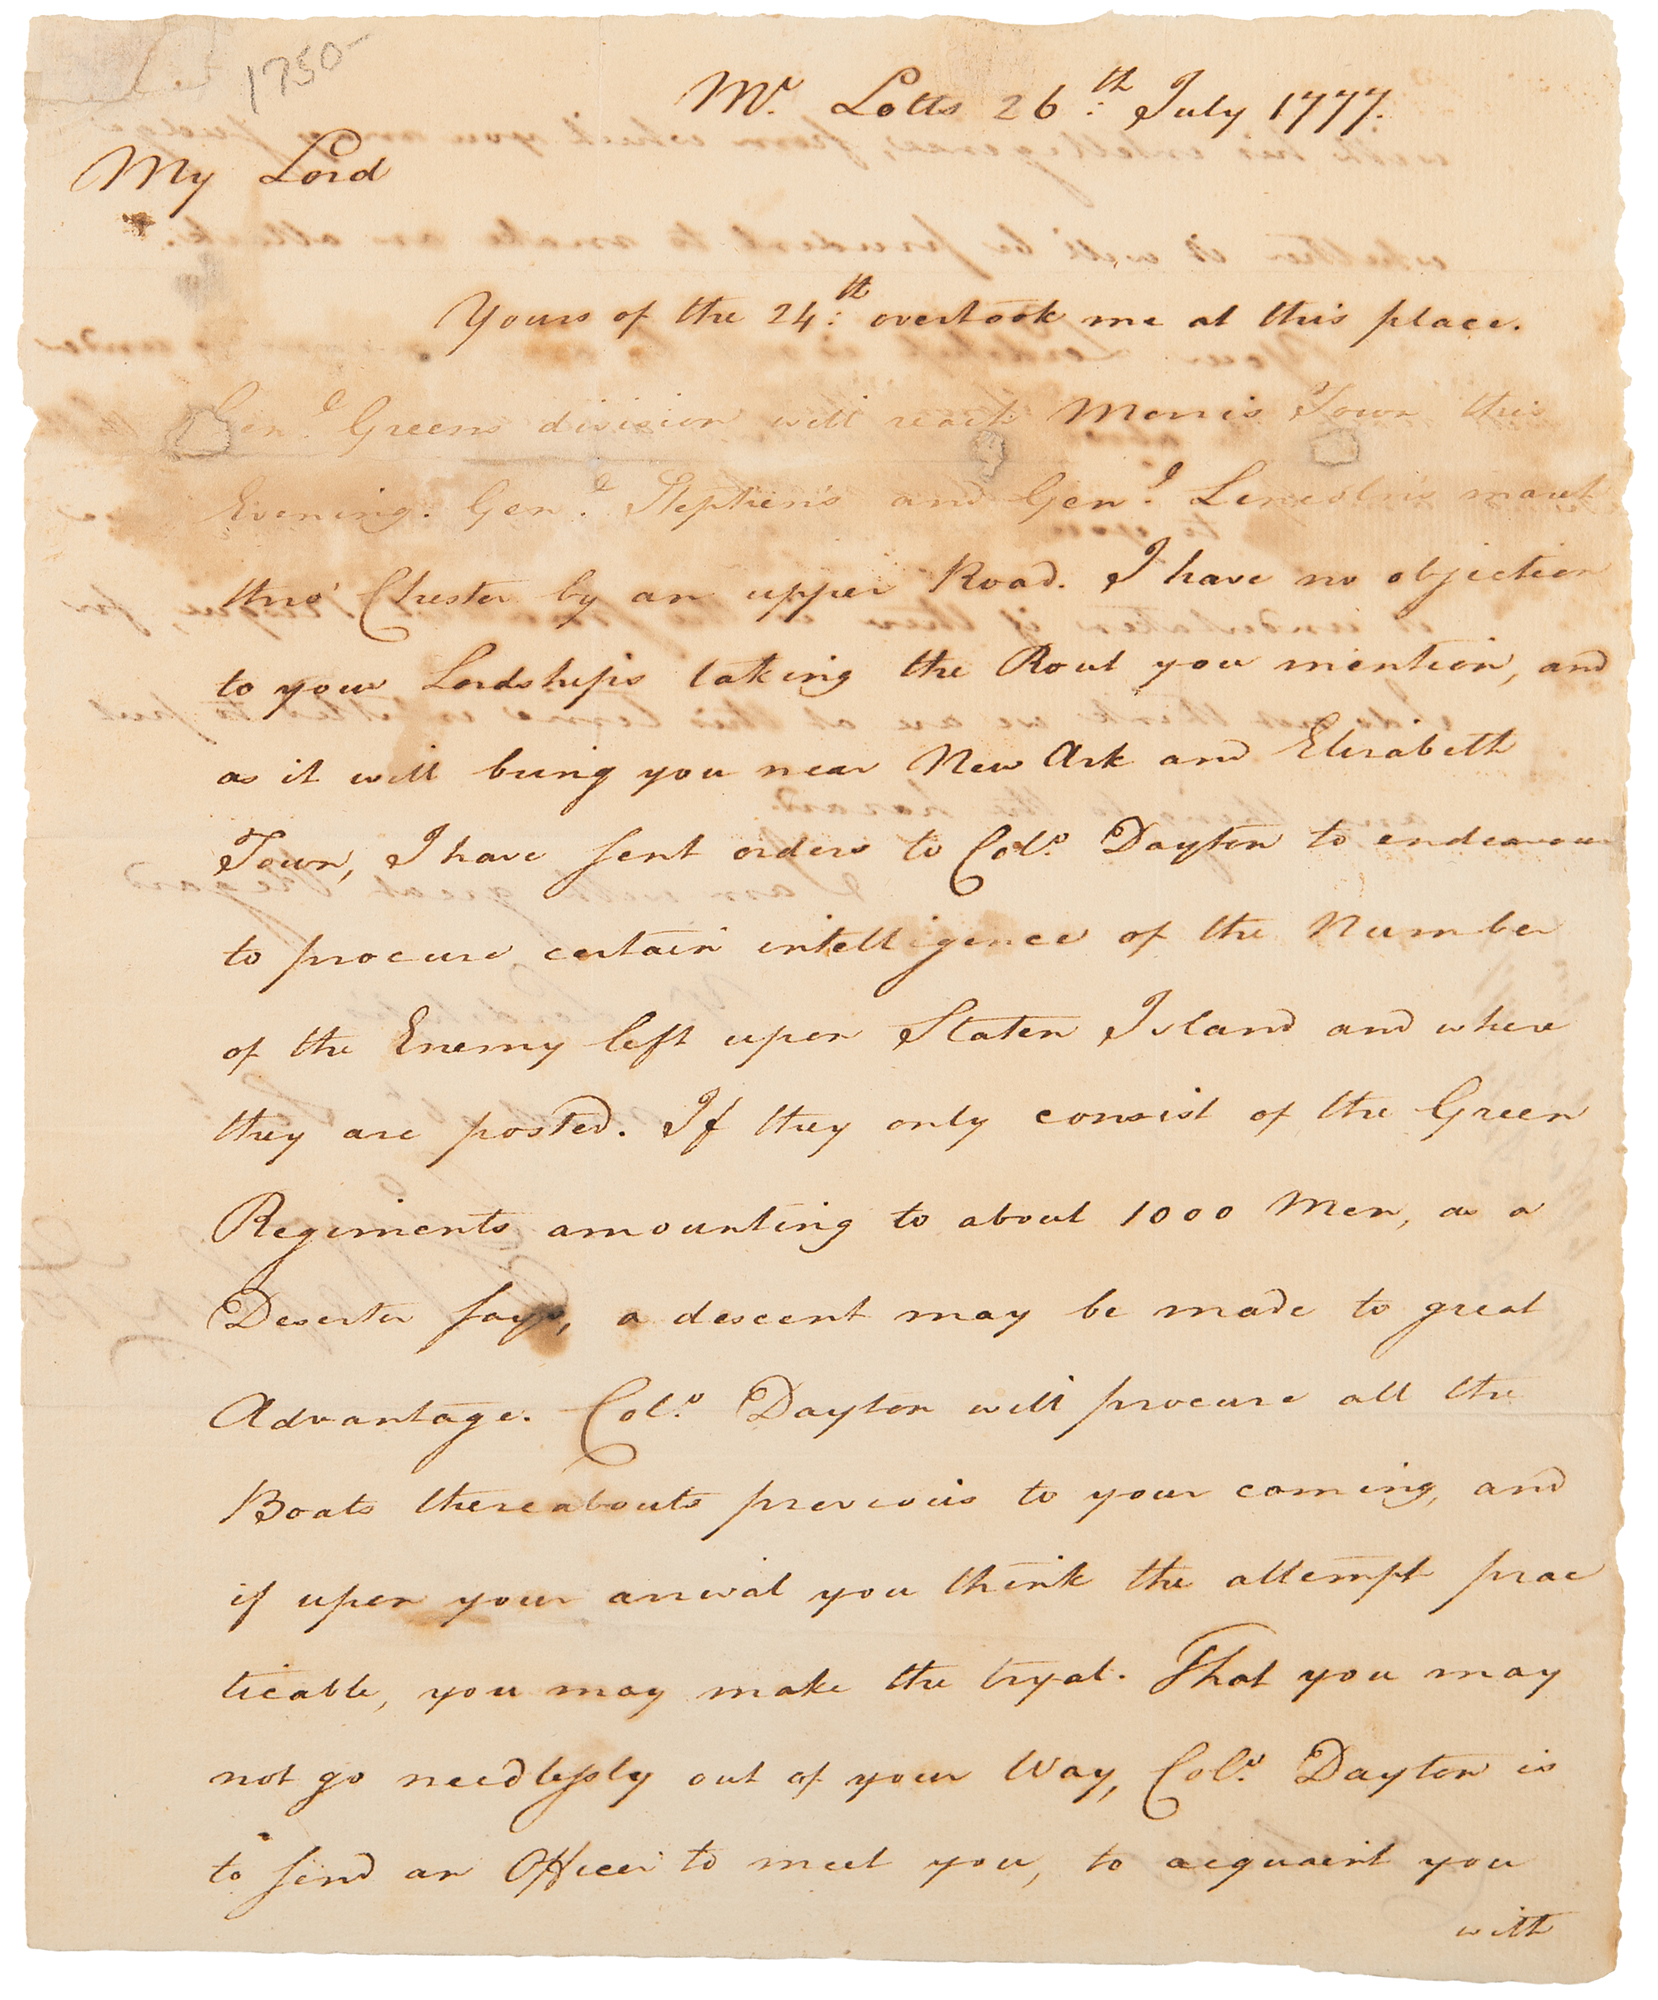 1750-
Mr. Lotts 26th: July 1777.
My Lord
Yours of the 24th: overtook me at this place.
Genl. Greens division will reach Morris Town this
Evening. Genl. Stephen's and Genl. Lincoln's march
thro' Chester by an upper Road. I have no objection
to your Lordships taking the Rout you mention, and
as it will bring you near New Ark and Elizabeth
Town, I have sent orders to Colo. Dayton to endeavour
to procure certain intelligence of the Number
of the Enemy left upon Staten Island and where
they are posted. If they only consist of the Green
Regiments amounting to about 1000 Men, as a
Deserter says, a descent may be made to great
Advantage. Colo. Dayton will procure all the
Boats thereabouts previous to your coming, and
if upon your arrival you think the attempt prac
ticable, you may make the tryal. That you may
not go needlessly out of your Way, Colo. Dayton is
to send an Officer to meet you, to acquaint you
with